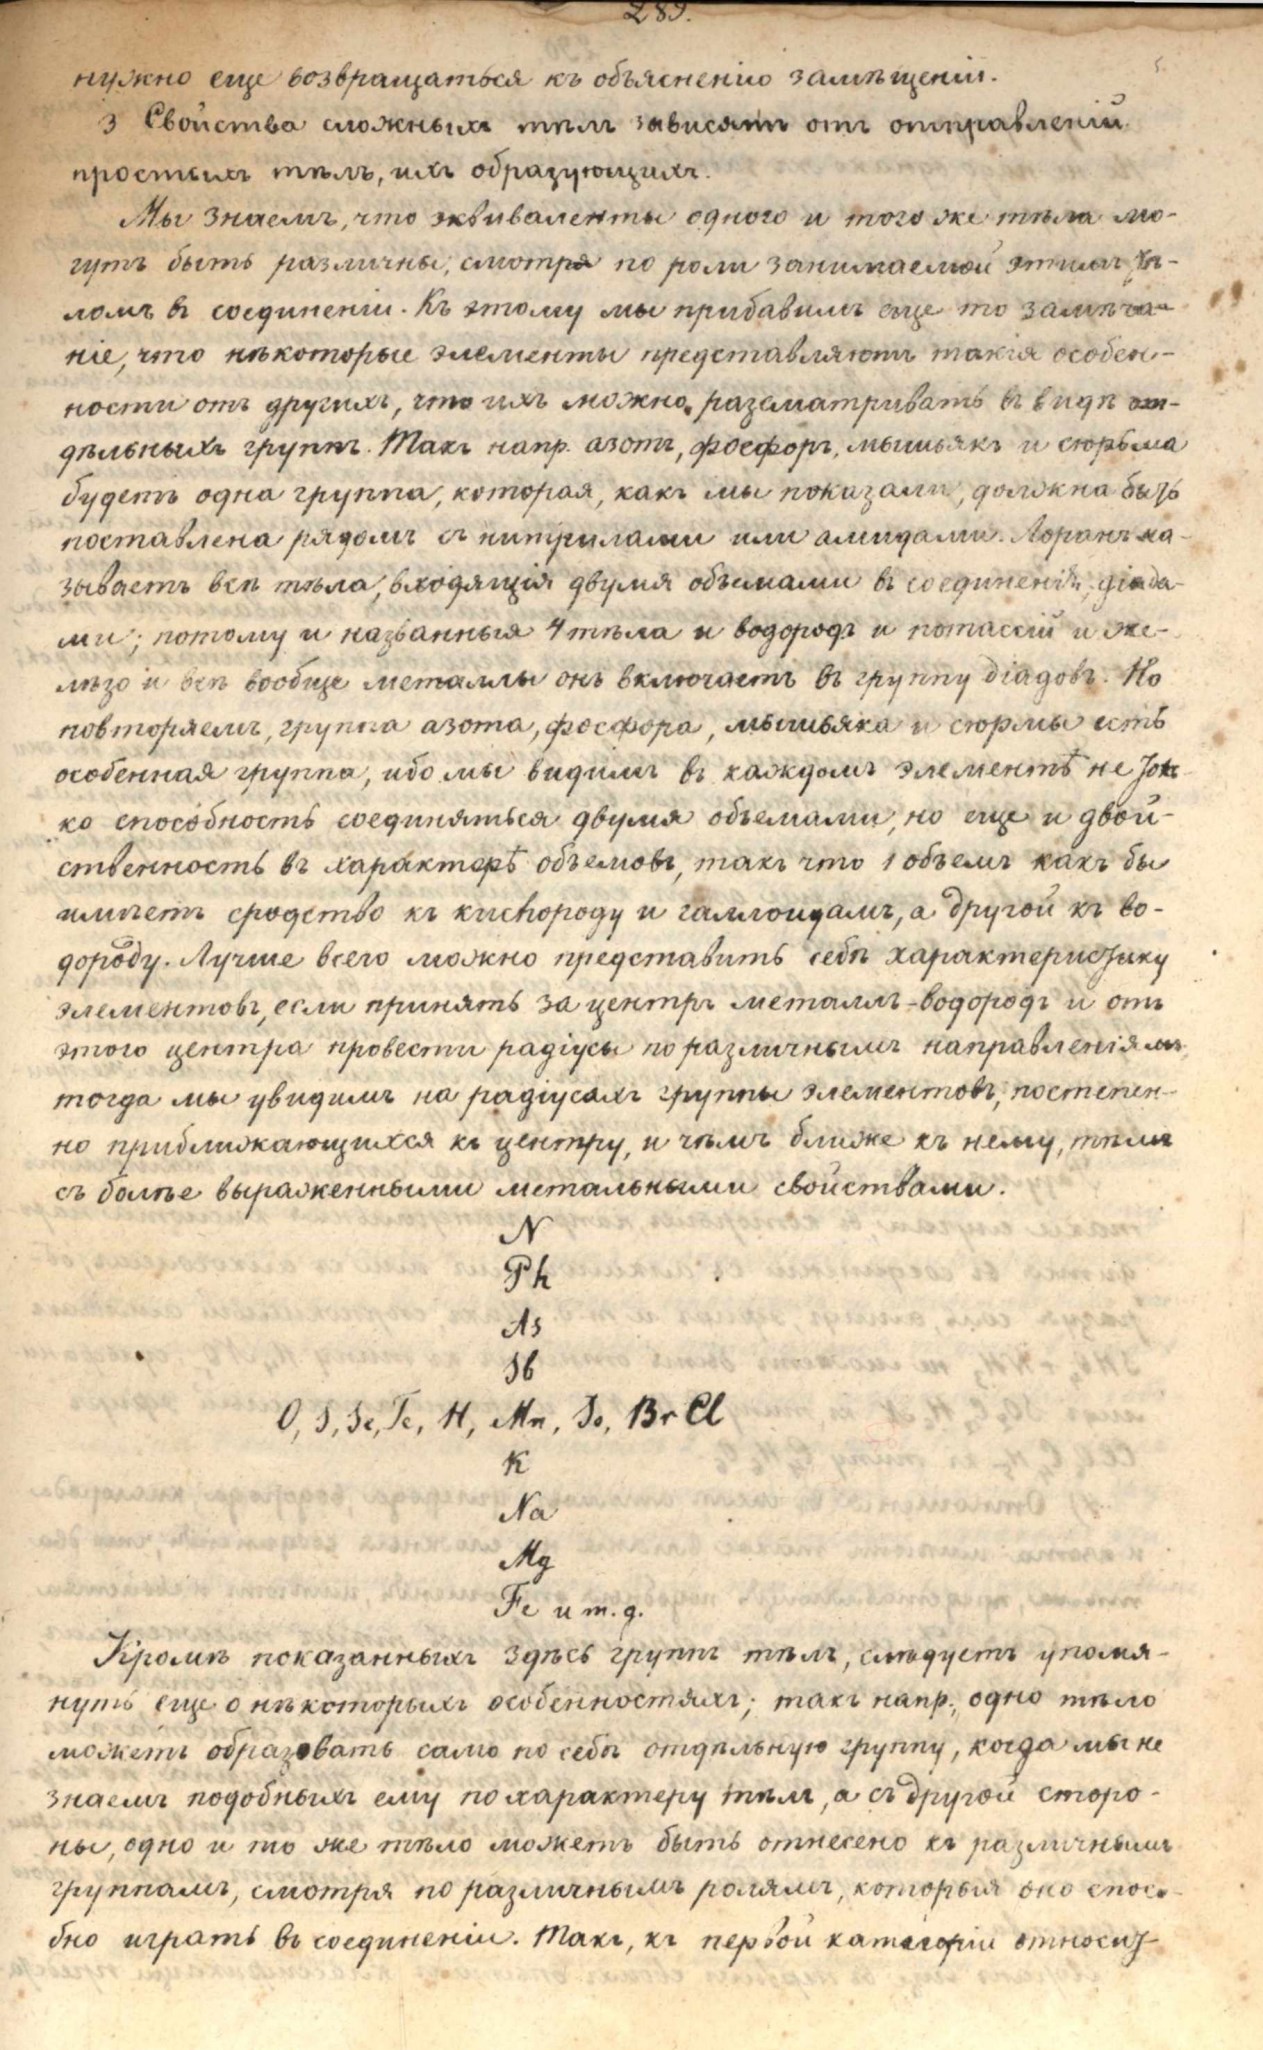 289.
нужно еще возвращаться къ объясненію замѣщеній.
3 Свойства сложныхъ тѣлъ зависятъ отъ отправленій
простыхъ тѣлъ, ихъ образующихъ.
Мы знаемъ, что эквиваленты одного и того же тѣла мо-
гутъ быть различны, смотря по роли занимаемой этимъ тѣ-
ломъ въ соединеніи. Къ этому мы прибавимъ еще то замѣча-
ніе, что нѣкоторые элементы представляютъ такія особен-
ности отъ другихъ, что ихъ можно разсматривать въ видѣ от-
дѣльныхъ группъ. Такъ напр. азотъ, фосфоръ, мышьякъ и сюрьма
будетъ одна группа, которая, какъ мы показали, должна быть
поставлена рядомъ съ нитрилами или амидами. Лоранъ на-
зываетъ всѣ тѣла, входящія двумя объемами въ соединенія, діада-
ми; потому и названныя 4 тѣла и водородъ и потассій и же-
лѣзо и всѣ вообще металлы онъ включаетъ въ группу діадовъ. Но
повторяемъ, группа азота, фосфора, мышьяка и сюрмы есть
особенная группа, ибо мы видимъ въ каждомъ элементѣ не толь-
ко способность соединяться двумя объемами, но еще и двой-
ственность въ характерѣ объемовъ, такъ что 1 объемъ какъ бы
имѣетъ сродство къ кислороду и галлоидамъ, а другой къ во-
дороду. Лучше всего можно представить себѣ характеристику
элементовъ, если принять за центръ металлъ-водородъ и отъ
этого центра провести радіусы по различнымъ направленіямъ
тогда мы увидимъ на радіусахъ группы элементовъ, постепен-
но приближающихся къ центру, и чѣмъ ближе къ нему, тѣмъ
съ болѣе выраженными метальными свойствами.
N
Ph
As
Sb
O, S, Se, Te, H, Mn, Jo, Br Cl
K
Na
Mg
Fe и т. д.
Кромѣ показанныхъ здѣсь группъ тѣлъ, слѣдуетъ упомя-
нуть еще о нѣкоторыхъ особенностяхъ; такъ напр., одно тѣло
можетъ образовать само по себѣ отдѣльную группу, когда мы не
знаемъ подобныхъ ему по характеру тѣлъ, а съ другой сторо-
ны, одно и то же тѣло можетъ быть отнесено къ различнымъ
группамъ, смотря по различнымъ ролямъ, которыя оно спосо-
бно играть въ соединеніи. Такъ, къ первой категоріи относит-